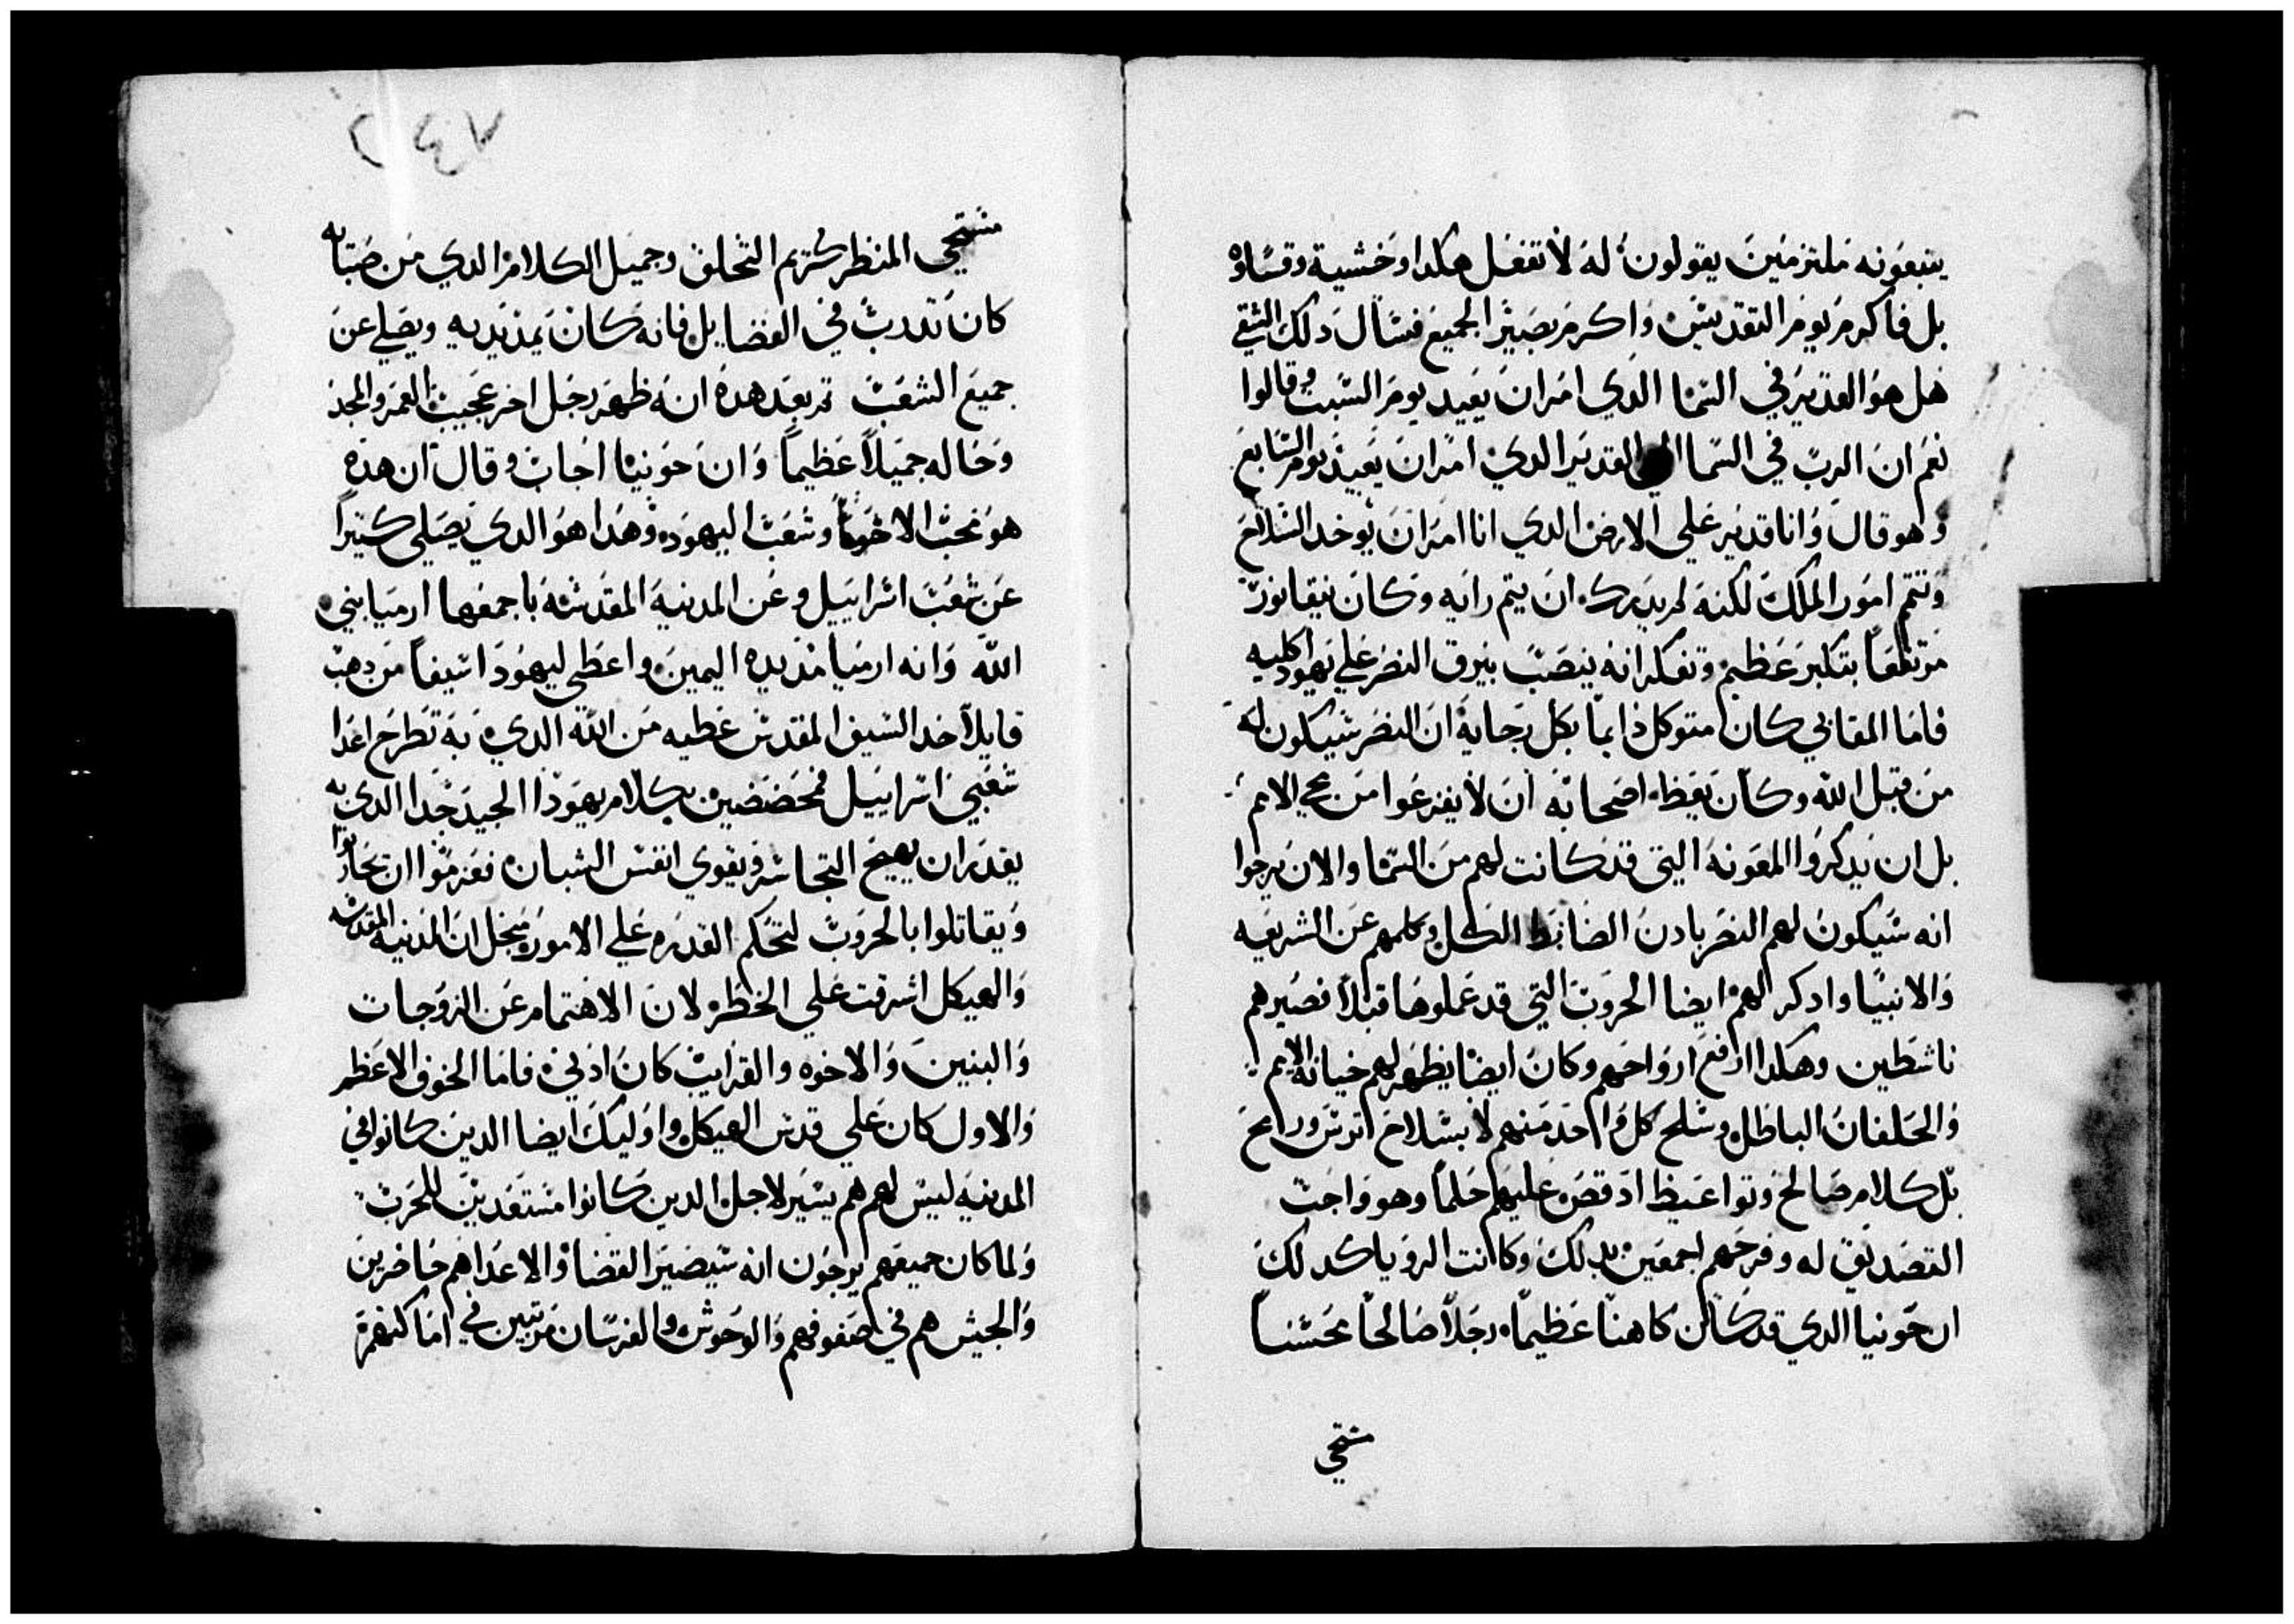 يتبعونه ملتزمين يقولون له لا تفعل هكدا وخشية وقساوه
بل فاكرم يوم التقديس واكرم بصير الجميع فسال دلك الشقي
هل هو القدير في السما الدي امر ان يعيد يوم السبت وقالوا
نعم ان الرب في السما الحي القدير الدي امر ان يعيد يوم السابع
وهو قال وانا قدير علي الارض الدي انا امر ان يوخد السلاح
وتتم امور الملك لكنه لم يدرك ان يتم رايه وكان نيقانور
مرتفعا بتكبر عظيم وتفكر انه ينصب بيرق النصر علي يهودا كليه
فاما المقابي كان متوكل دايما بكل رجايه ان النصر سيكون له
من قبل الله وكان يعظ اصحابه ان لا يفزعوا من مجي الامم
بل ان يدكروا المعونه اليتي قد كانت لهم من السما والان يرجوا
انه سيكون لهم النصر بادن الضابط الكل وكلمهم عن الشريعه
والانبيا وادكر لهم ايضا الحروب التي قد عملوها قبلا فصيرهم
ناشطين وهكدا ارفع ارواحهم وكان ايضا يظهر لهم خيانة الامم
والحلفان الباطل وسلح كل واحد منهم لا بسلاح اترس ورامح
بل كلام صالح وتواعيظ اد قص عليهم حلما وهو واجب
التصديق له وفرحهم اجمعين بدلك وكانت الرويا كدلك
ان حونيا الدي قد كان كاهنا عظيما رجلا صالحا محسنا
مستحي
مستحي المنظر كريم التخلق وجميل الكلام الدي من صباه
كان تدرب في الفضايل فانه كان يمد يديه ويصلي عن
جميع الشعب ثم بعد هده انه ظهر رجل اخر عجيب العمر والمجد
وحاله جميلا عظيما وان حونيا اجاب وقال ان هده
هو محب الاخوة وشعب اليهود وهدا هو الدي يصلي كتيرا
عن شعب اسراييل وعن المدنية المقدسه باجمعها ارميا بني
الله وانه ارميا مد يده اليمين واعطي ليهودا سيفا من دهب
قايلا خد السيف المقدس عطيه من الله الدي به تطرح اعدا
شعبي اسراييل فمحضضين بكلام يهودا الجيد جدا الدي به
يقدر ان يهيج التجاسر ويقوي انفس الشبان فعزموا ان يحاربوا
ويقاتلوا بالحروب لتحكم القدره علي الامور منجل ان المدنيه المقدسه
والهيكل اشرفت علي الخطر لان الاهتمام عن الزوجات
والبنين والاخوه والقرايب كان ادني فاما الخوف الاعظم
والاول كان علي قدس الهيكل واوليك ايضا الدين كانوا في
المدنيه ليس لهم هم يسير لاجل الدين كانوا مستعدين للحرب
ولما كان جميعهم يرجون انه سيصير القضا والاعداهم حاضرين
والجيش هم في صفوفهم والوحوش والفرسان مرتبين في اماكنهم